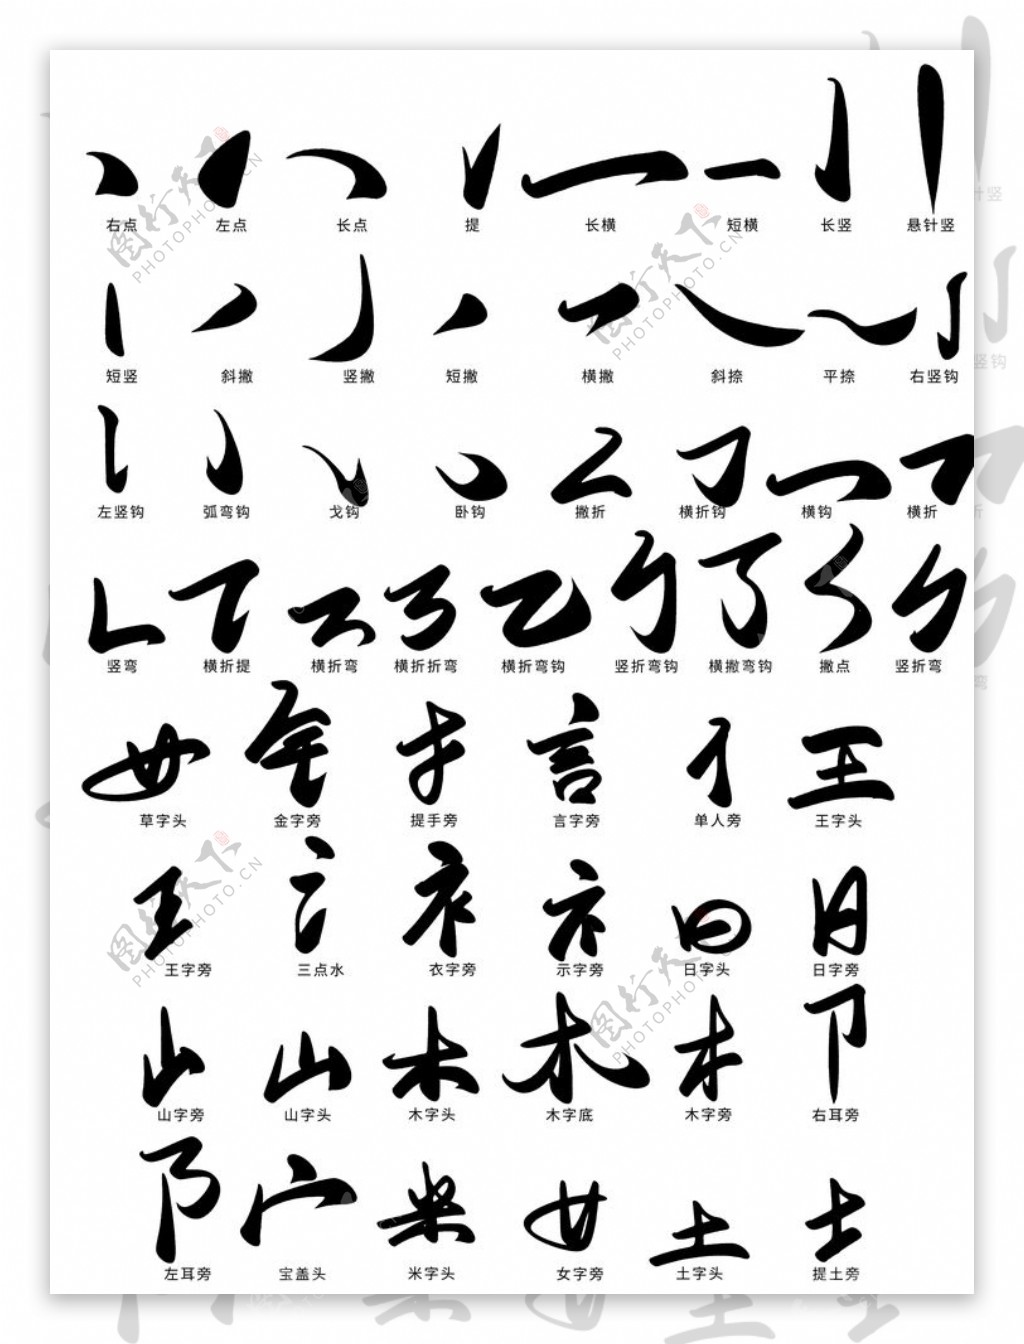 右点 左点 长点 提 长横 短横 长竖 悬针竖
短竖 斜撇 竖撇 短撇 横撇 斜捺 平捺 右竖钩
左竖钩 弧弯钩 戈钩 卧钩 撇折 横折钩 横钩 横折
竖弯 横折提 横折弯 横折折弯 横折弯钩 竖折弯钩 横撇弯钩 撇点 竖折弯
草字头 金字旁 提手旁 言字旁 单人旁 王字头
王字旁 三点水 衣字旁 示字旁 日字头 日字旁
山字旁 山字头 木字头 木字底 木字旁 右耳旁
左耳旁 宝盖头 米字头 女字旁 土字头 提土旁
图行天下 PHOTOPHOTO.CN
图行天下 PHOTOPHOTO.CN
图行天下 PHOTOPHOTO.CN
图行天下 PHOTOPHOTO.CN